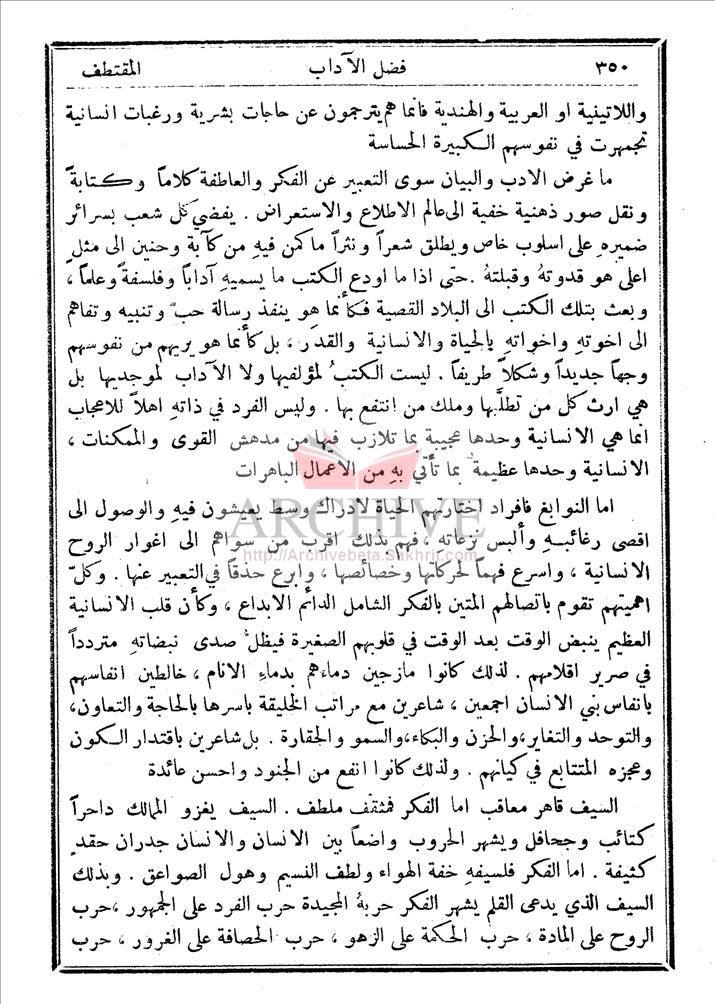 ٣٥٠ فضل الآداب المقتطف
واللاتينية او العربية والهندية فانما هم يترجمون عن حاجات بشرية ورغبات انسانية
تجمهرت في نفوسهم الكبيرة الحساسة
ما غرض الادب والبيان سوى التعبير عن الفكر والعاطفة كلاماً وكتابةً
ونقل صور ذهنية خفية الى عالم الاطلاع والاستعراض . يفضي كل شعب بسرائر
ضميرهِ على اسلوب خاص ويطلق شعراً ونثراً ما كمن فيهِ من كآبة وحنين الى مثلٍ
اعلى هو قدوتهُ وقبلتهُ . حتى اذا ما اودع الكتب ما يسميهِ آداباً وفلسفةً وعلماً ،
وبعث بتلك الكتب الى البلاد القصية فكأنما هو ينفذ رسالة حبّ وتنبيه وتفاهم
الى اخوتهِ واخواتهِ بالحياة والانسانية والقدر ، بل كأنما هو يريهم من نفوسهم
وجهاً جديداً وشكلاً طريفاً . ليست الكتبُ لمؤلفيها ولا الآداب لموجديها بل
هي ارث كل من تطلَّبها وملك من انتفع بها . وليس الفرد في ذاتهِ اهلاً للاعجاب
انما هي الانسانية وحدها عجيبة بما تلازب فيها من مدهش القوى والممكنات ،
الانسانية وحدها عظيمة بما تأتي بهِ من الاعمال الباهرات
اما النوابغ فافراد اختارتهم الحياة لادراك وسط يعيشون فيهِ والوصول الى
اقصى رغائبهِ وألبس نزعاته ، فهم بذلك اقرب من سواهم الى اغوار الروح
الانسانية ، واسرع فهماً لحركاتها وخصائصها ، وابرع حذقاً في التعبير عنها . وكلّ
اهميتهم تقوم باتصالهم المتين بالفكر الشامل الدائم الابداع ، وكأن قلب الانسانية
العظيم ينبض الوقت بعد الوقت في قلوبهم الصغيرة فيظلُّ صدى نبضاتهِ متردداً
في صرير اقلامهم . لذلك كانوا مازجين دماءهم بدماءِ الانام ، خالطين انفاسهم
بانفاس بني الانسان اجمعين ، شاعرين مع مراتب الخليقة باسرها بالحاجة والتعاون،
والتوحد والتغاير،والحزن والبكاء،والسمو والحقارة . بل شاعرين باقتدار الكون
وعجزه المتتابع في كيانهم . ولذلك كانوا انفع من الجنود واحسن عائدة
السيف قاهر معاقب اما الفكر فمثقف ملطف . السيف يغزو الممالك داحراً
كتائب وجحافل ويشهر الحروب واضعاً بين الانسان والانسان جدران حقدٍ
كثيفة . اما الفكر فلسيفهِ خفة الهواء ولطف النسيم وهول الصواعق . وبذلك
السيف الذي يدعى القلم يشهر الفكر حربهُ المجيدة حرب الفرد على الجمهور ،حرب
الروح على المادة ، حرب الحكمة على الزهو ، حرب الحصافة على الغرور ، حرب
ARCHIVE
http://Archivebeta.Sakhrit.com